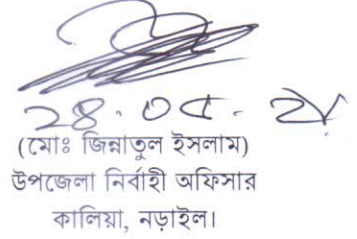 ২৪. ০৫.
(মোঃ জিন্নাতুল ইসলাম)
উপজেলা নির্বাহী অফিসার
কালিয়া, নড়াইল।